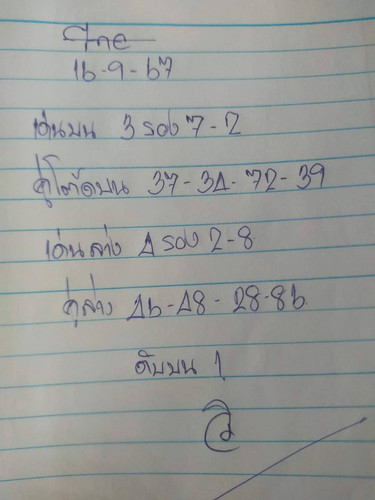 ไทย
16-9-67
เด่นบน 3 รอง 7-2
คู่โต๊ดบน 37-34-72-39
เด่นล่าง 4 รอง 2-8
คู่ล่าง 46-48-28-86
ดับบน 1